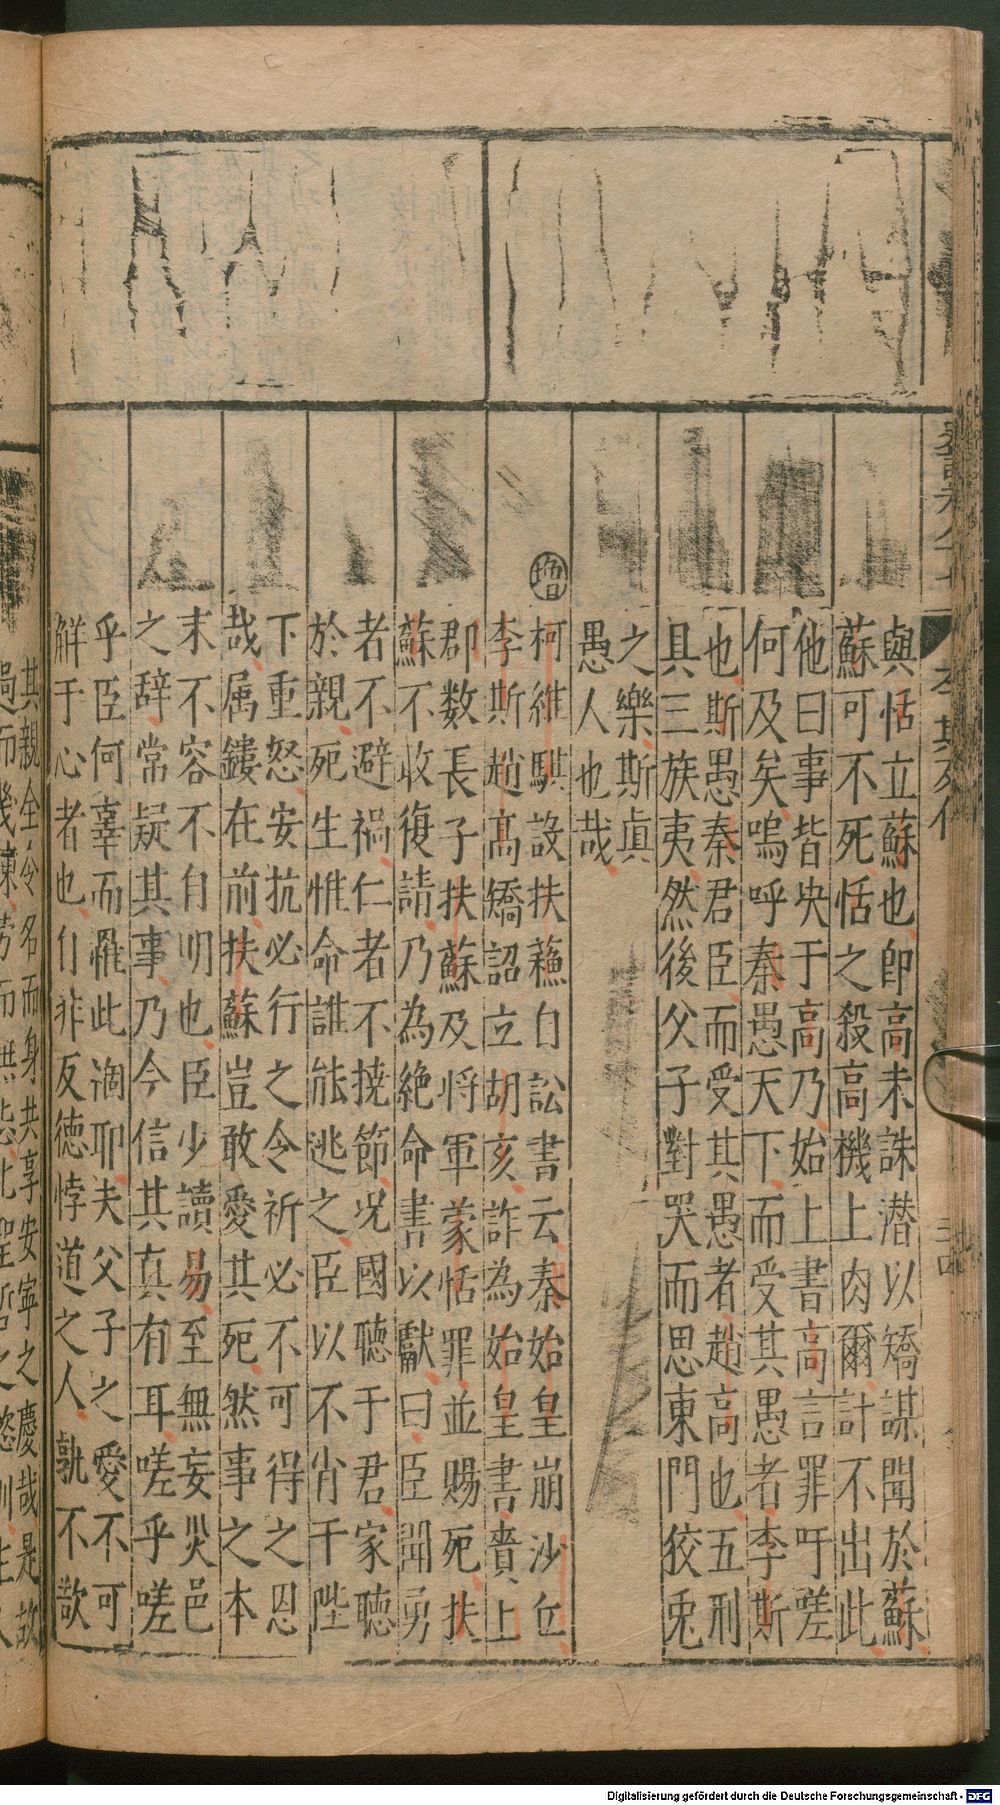 與恬立蘇也卽高未誅潛以矯謀聞於蘇
蘇可不死恬之殺高機上肉爾計不出此
他曰事皆央于高乃始上書高言罪吁嗟
何及矣嗚呼秦愚天下而受其愚者李斯
也斯愚秦君臣而受其愚者趙高也五刑
具三族夷然後父子對哭而思東門狡兎
之樂斯眞
愚人也哉
增
柯維騏設扶蘓自訟書云秦始皇崩沙丘
李斯趙高矯詔立胡亥詐為始皇書賫上
郡数長子扶蘇及将軍蒙恬罪並賜死扶
蘇不收復請乃為絶命書以獻曰臣聞勇
者不避禍仁者不撓節况國聴于君家聴
於親死生惟命誰能逃之臣以不肖干陛
下重怒安抗必行之令祈必不可得之恩
哉属鏤在前扶蘇豈敢愛其死然事之本
末不容不自明也臣少讀易至無妄災邑
之辞常疑其事乃今信其真有耳嗟乎嗟
乎臣何辜而罹此澷耶夫父子之愛不可
觧于心者也自非反徳悖道之人孰不歆
其親全令名而身共享安寧之慶哉是故
史記卷八十七
李斯列傳
二十四
Digitalisierung gefördert durch die Deutsche Forschungsgemeinschaft - DFG